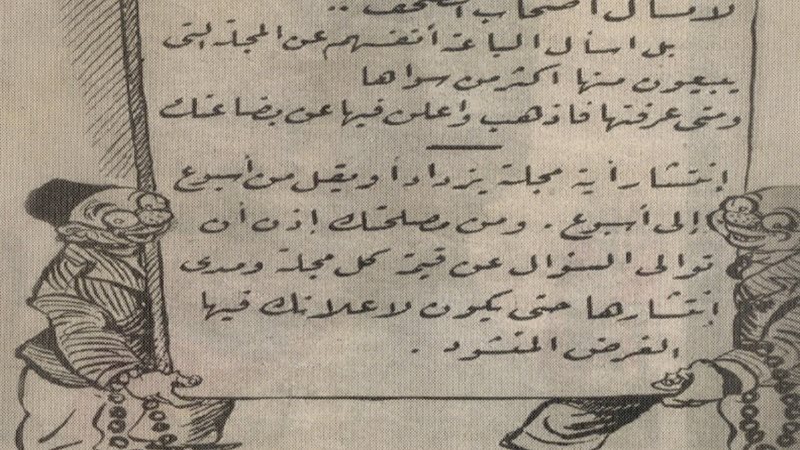 لا مسأل أصحاب الصحف ..
بل اسأل الباعة أنفسهم عن المجلة التى
يبيعون منها اكثر من سواها
ومتى عرفتها فاذهب واعلن فيها عن بضاعتك
إنتشار أية مجلة يزداد أو يقل من أسبوع
إلى أسبوع . ومن مصلحتك إذن أن
توالى السؤال عن قيمة كل مجلة ومدى
إنتشارها حتى يكون لاعلانك فيها
الغرض المنشود .